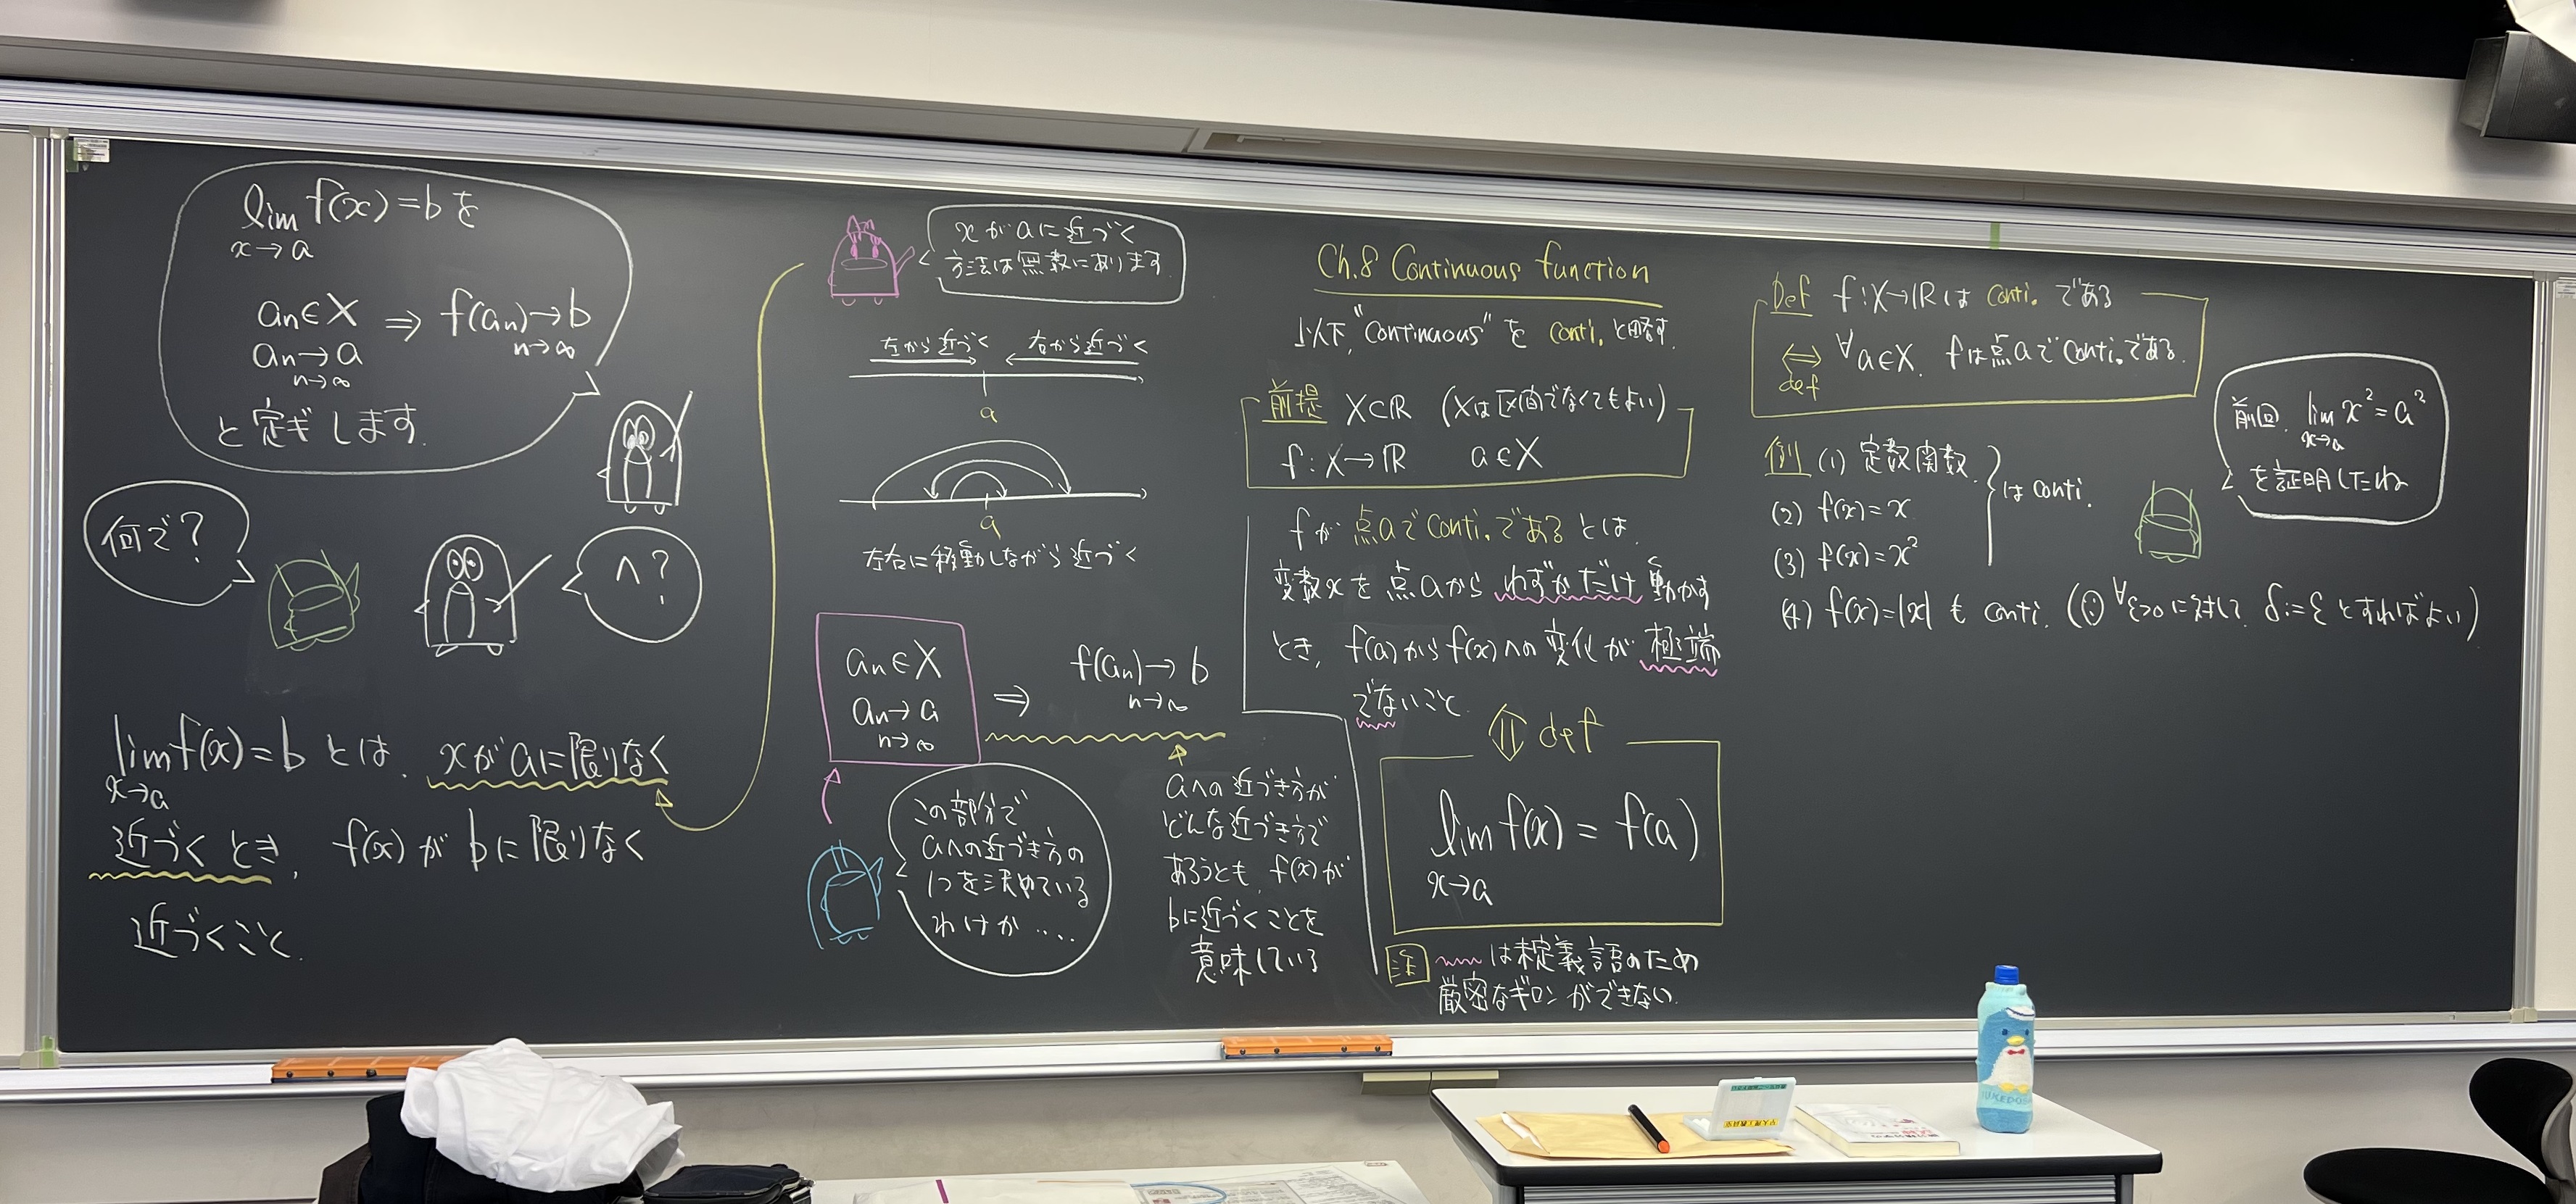 lim f(x)=b を
x→a
an∈X ⇒ f(an)→b
an→a n→∞
n→∞
と定ギします.
何で?
ヘ?
lim f(x)=b とは, xがaに限りなく
x→a
近づくとき, f(x)が bに限りなく
近づくこと.
xがaに近づく
方法は無数にあります.
左から近づく 右から近づく
a
a
左右に移動しながら近づく
an∈X
an→a
n→∞
⇒ f(an)→b
n→∞
この部分で
aへの近づき方の
1つを決めている
わけか….
aへの近づき方が
どんな近づき方で
あろうとも, f(x)が
bに近づくことを
意味している
Ch.8 Continuous function
以下, "Continuous" を conti. と略す.
前提 X⊂ℝ (Xは区間でなくてもよい)
f:X→ℝ a∈X
fが 点aでConti.であるとは,
変数xを 点aから わずかだけ 動かす
とき, f(a)からf(x)への変化が 極端
でないこと.
⇕ def
lim f(x) = f(a)
x→a
注 〰は未定義語のため
厳密なギロンができない.
Def f:X→ℝは Conti. である
⇔ ∀a∈X, fは点aでConti.である.
def
例 (1) 定数関数.
(2) f(x)=x
(3) f(x)=x²
はconti.
(4) f(x)=|x| も conti. (∵ ∀ε>0に対して, δ:=ε とすればよい)
前回, lim x²=a²
x→a
を証明したね
TUXEDOSAM